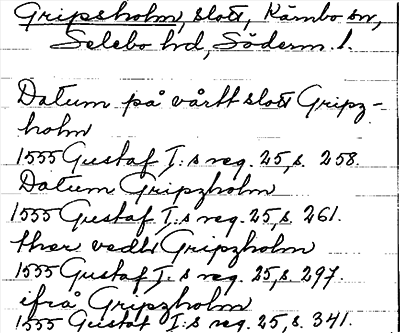 Gripsholm, slott, Kärnbo sn,
Selebo hd, Söderm. l.
Datum på vårtt slott Gripz-
holm
1555 Gustaf I:s reg. 25, s. 258.
Datum Gripzholm
1555 Gustaf I:s reg. 25, s. 261.
ther vedt Gripzholm
1555 Gustaf I:s reg. 25, s. 297.
ifrå Gripzholm
1555 Gustaf I:s reg. 25, s. 341.